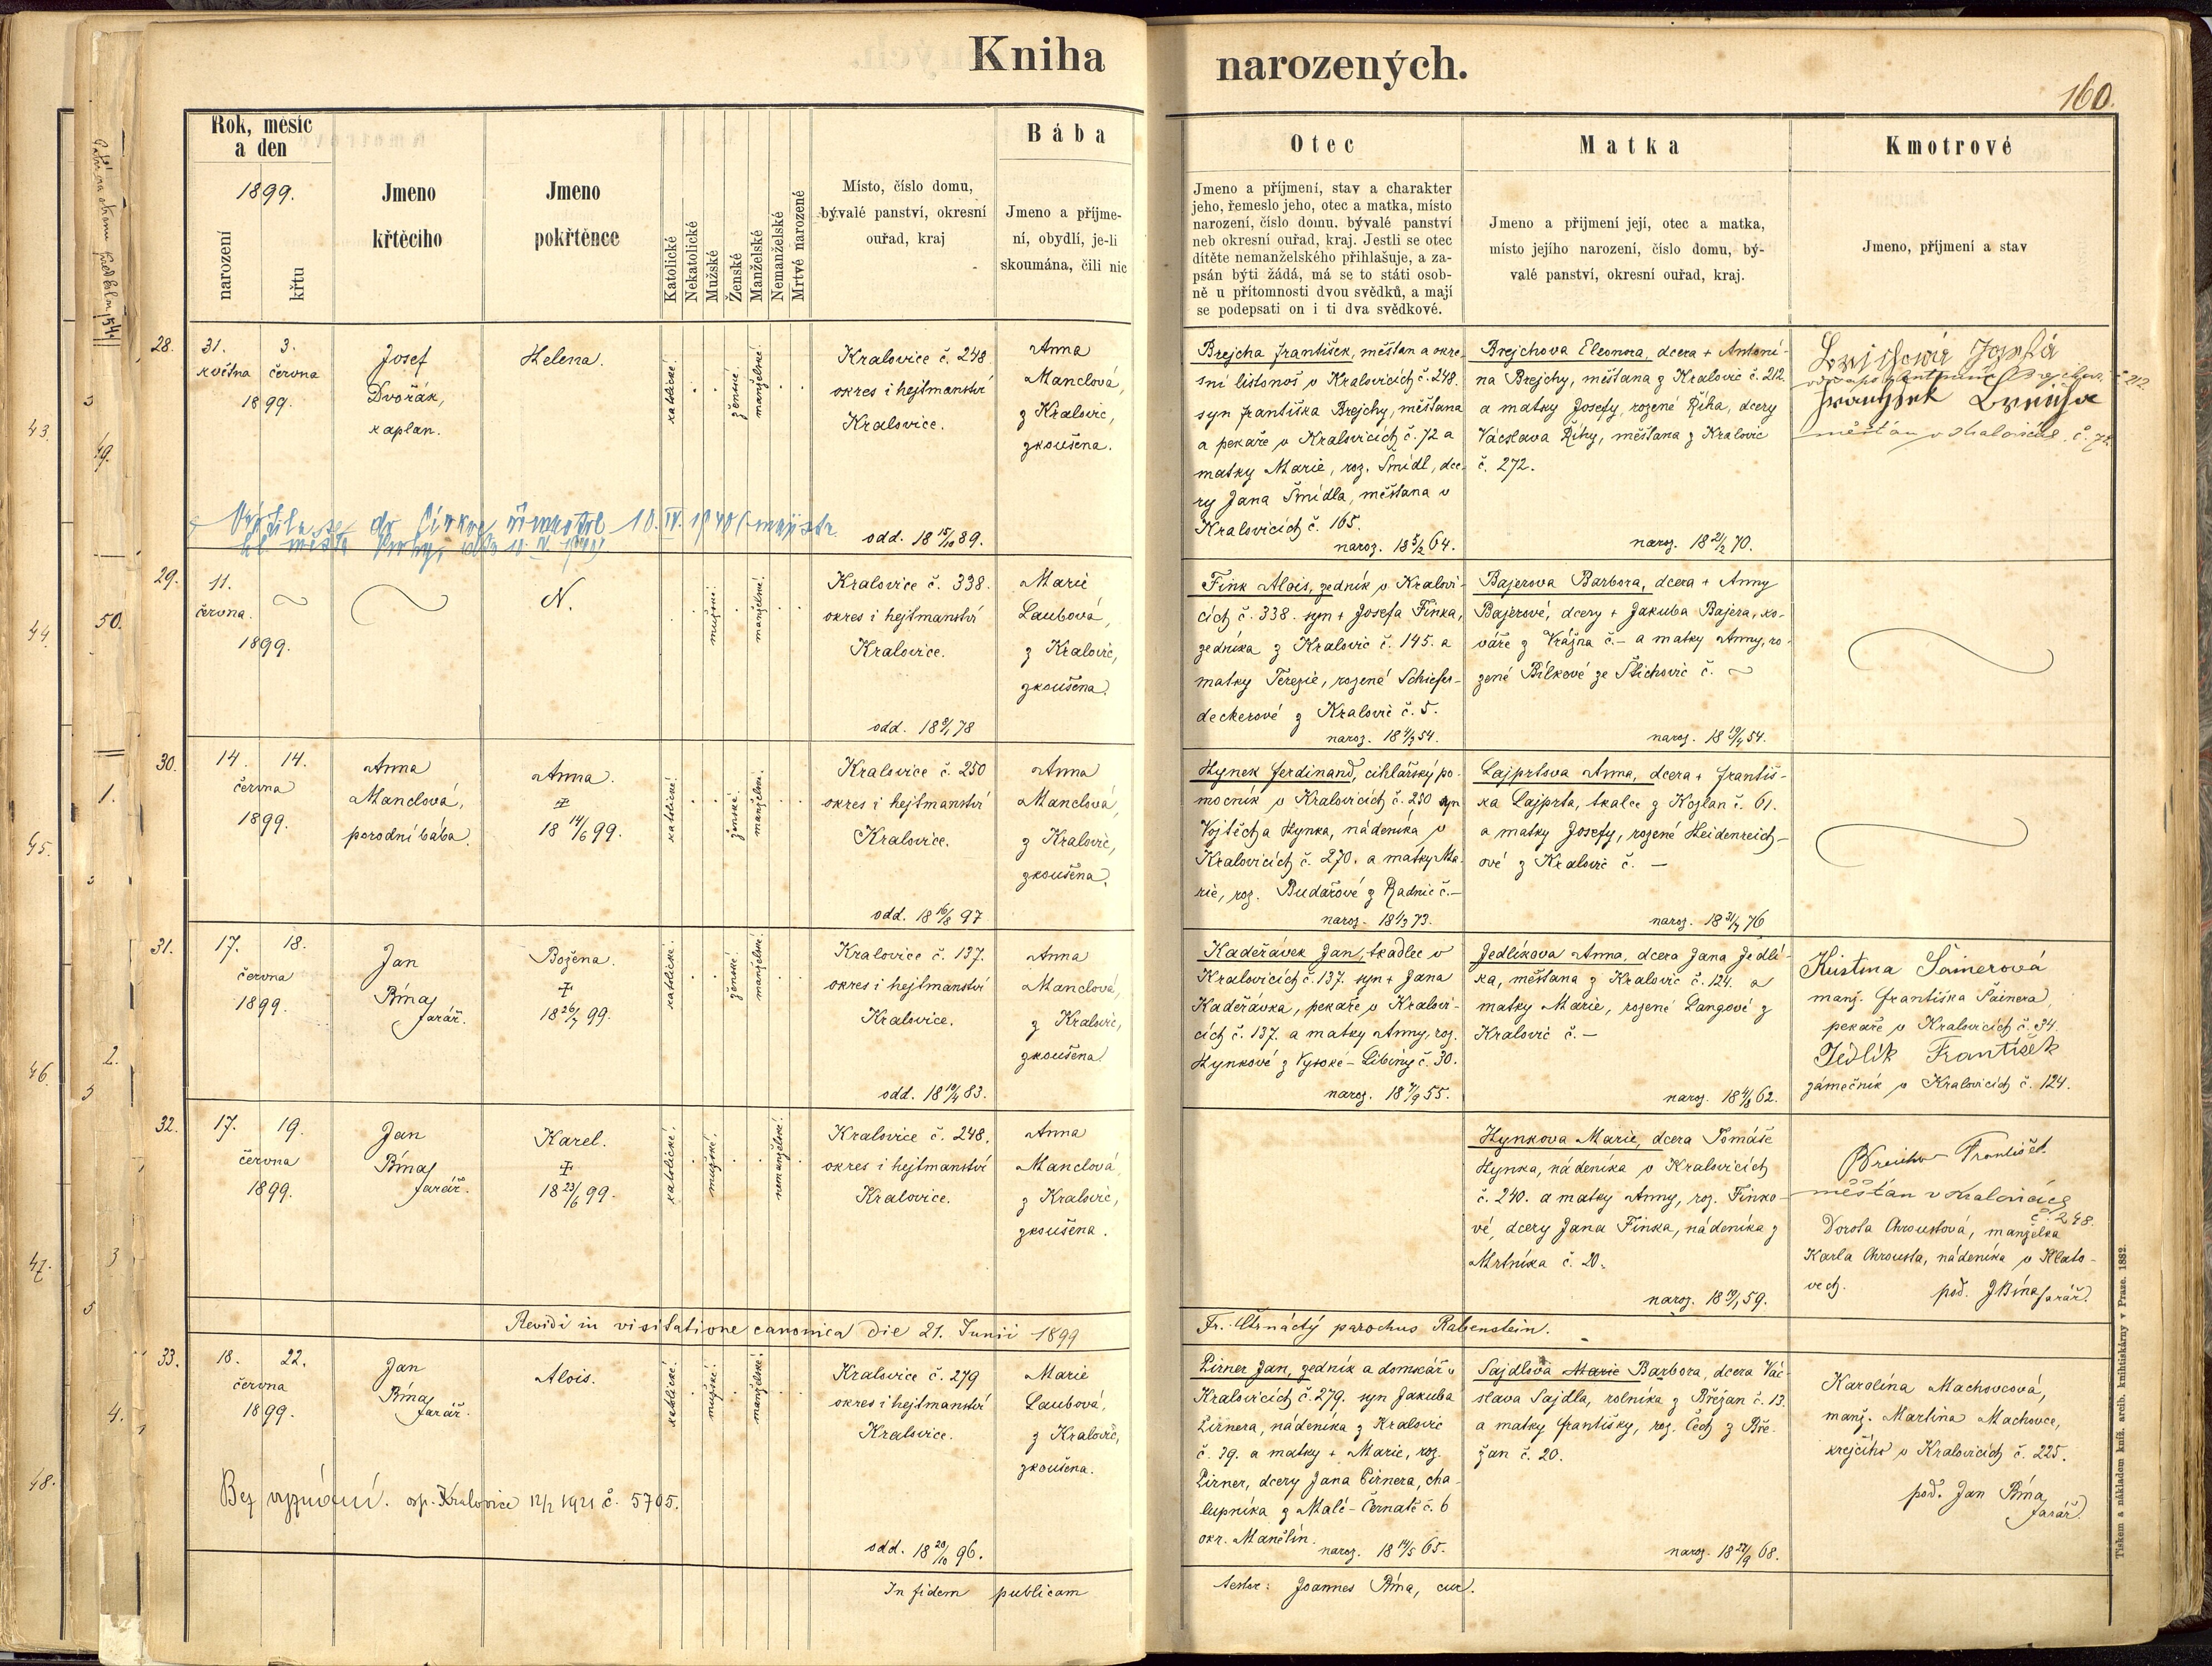 Kniha narozených.
160.
Rok, měsíc
a den
1899.
narození
křtu
Jmeno
křtěcího
Jmeno
pokřtěnce
Katolické
Nekatolické
Mužské
Ženské
Manželské
Nemanželské
Mrtvé narozené
Místo, číslo domu,
bývalé panství, okresní
ouřad, kraj
Bába
Jmeno a příjme-
ní, obydlí, je-li
skoumána, čili nic
Otec
Jmeno a příjmení, stav a charakter
jeho, řemeslo jeho, otec a matka, místo
narození, číslo domu. bývalé panství
neb okresní ouřad, kraj. Jestli se otec
dítěte nemanželského přihlašuje, a za-
psán býti žádá, má se to státi osob-
ně u přítomnosti dvou svědků, a mají
se podepsati on i ti dva svědkové.
Matka
Jmeno a přijmení její, otec a matka,
místo jejího narození, číslo domu, bý-
valé panství, okresní ouřad, kraj.
Kmotrové
Jmeno, příjmení a stav
28.
31. 3.
května června
1899.
Josef
Dvořák,
kaplan.
Helena.
katolické.
ženské.
manželské.
Kralovice č. 248.
okres i hejtmanství
Kralovice.
odd. 18 15/10 89.
Anna
Manclová,
z Kralovic,
zkoušena.
Brejcha František, měšťan a okre-
sní listonoš v Kralovicích č. 248.
syn Františka Brejchy, měšťana
a pekaře v Kralovicích č. 72 a
matky Marie, roz. Šmídl, dce-
ry Jana Šmídla, měšťana v
Kralovicích č. 165.
naroz. 18 5/2 64.
Brejchova Eleonora, dcera + Antoní-
na Brejchy, měšťana z Kralovic č. 212.
a matky Josefy, rozené Říha, dcery
Václava Říhy, měšťana z Kralovic
č. 272.
naroz. 18 21/2 70.
č. 212.
měšťan v Kralovicích. č. 72.
10. IV. 1940
29.
11.
června.
1899.
N.
mužské.
manželské.
Kralovice č. 338.
okres i hejtmanství
Kralovice.
odd. 18 9/1 78
Marie
Laubová,
z Kralovic,
zkoušena.
Fink Alois, zedník v Kralovi-
cích č. 338. syn + Josefa Finka,
zedníka z Kralovic č. 145. a
matky Terezie, rozené Schiefer-
deckerové z Kralovic č. 5.
naroz. 18 4/3 54.
Bajerova Barbora, dcera + Anny
Bajerové, dcery + Jakuba Bajera, ko-
váře z Vrážna č.– a matky Anny, ro-
zené Bílkové ze Štichovic č.
naroz. 18 19/4 54.
30.
14. 14.
června
1899.
Anna
Manclová,
porodní bába.
Anna.
18 14/6 99.
katolické.
ženské.
manželské.
Kralovice č. 250
okres i hejtmanství
Kralovice.
odd. 18 16/8 97
Anna
Manclová,
z Kralovic,
zkoušena.
Hynek Ferdinand, cihlářský po-
mocník v Kralovicích č. 250 syn
Vojtěcha Hynka, nádeníka v
Kralovicích č. 270. a matky Ma-
rie, roz. Budařové z Radnic č.–
naroz. 18 1/3 73.
Lajprtova Anna, dcera + Františ-
ka Lajprta, tkalce z Kozlan č. 61.
a matky Josefy, rozené Heidenreich-
ové z Kralovic č. –
naroz. 18 31/7 76
31.
17. 18.
června
1899.
Jan
Bína,
farář.
Božena.
18 26/7 99.
katolické.
ženské.
manželské.
Kralovice č. 137.
okres i hejtmanství
Kralovice.
odd. 18 19/4 83.
Anna
Manclová,
z Kralovic,
zkoušena.
Kadeřávek Jan, tkadlec v
Kralovicích č. 137. syn + Jana
Kadeřávka, pekaře v Kralovi-
cích č. 137. a matky Anny, roz.
Hynkové z Vysoké-Libiny č. 30.
naroz. 18 7/9 55.
Jedlíkova Anna, dcera Jana Jedlí-
ka, měšťana z Kralovic č. 124. a
matky Marie, rozené Langové z
Kralovic č. –
naroz. 18 4/8 62.
Kristina Šainerová
manž. Františka Šainera,
pekaře v Kralovicích č. 34.
Jedlík František
zámečník v Kralovicích č. 124.
32.
17. 19.
června
1899.
Jan
Bína,
farář.
Karel.
18 23/6 99.
katolické.
mužské.
nemanželské.
Kralovice č. 248.
okres i hejtmanství
Kralovice.
Anna
Manclová,
z Kralovic,
zkoušena.
Hynkova Marie, dcera Tomáše
Hynka, nádeníka v Kralovicích
č. 240. a matky Anny, roz. Finko-
vé, dcery Jana Finka, nádeníka z
Mrtníka č. 20.
naroz. 18 19/1 59.
František
měšťan v Kralovicích
č. 248.
Dorota Chroustová, manželka
Karla Chrousta, nádeníka v Klato-
vech.
pod. J Bína, farář.
Revidi in visitatione canonica die 21. Junii 1899
Fr. Čtrnáctý parochus Rabenstein.
33.
18. 22.
června
1899.
Jan
Bína,
farář.
Alois.
katolické.
mužské.
manželské.
Kralovice č. 279
okres i hejtmanství
Kralovice.
odd. 18 20/10 96.
Marie
Laubová,
z Kralovic,
zkoušena.
Pirner Jan, zedník a domkář v
Kralovicích č. 279. syn Jakuba
Pirnera, nádeníka z Kralovic
č. 39. a matky + Marie, roz.
Pirner, dcery Jana Pirnera, cha-
lupníka z Malé-Černatě č. 6
okr. Manětín.
naroz. 18 14/5 65.
Sajdlova Marie Barbora, dcera Vác-
slava Sajdla, rolníka z Břežan č. 13.
a matky Františky, roz. Čech z Bře-
žan č. 20.
naroz. 18 27/9 68.
Karolína Machovcová,
manž. Martina Machovce,
krejčího v Kralovicích č. 225.
pod. Jan Bína,
farář.
Bez vyznání. osp. Kralovice 12/2 1921 č. 5705.
In fidem publicam
testor: Joannes Bína, cur.
Tiskem a nákladem kníž. arcib. knihtiskárny v Praze. 1882.
43.
44.
45.
46.
47.
48.
49.
50.
1.
2.
3
4.